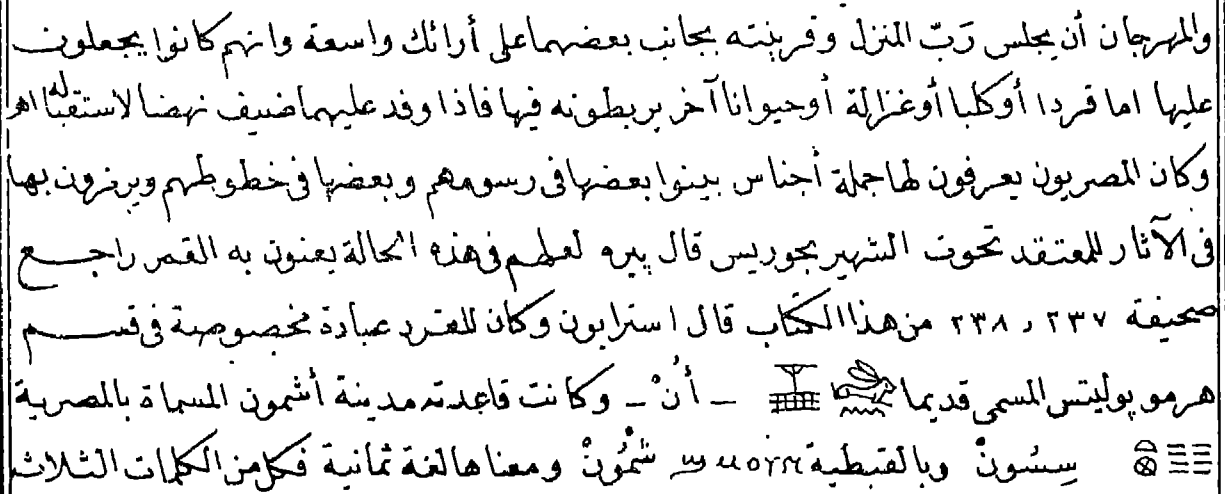 والمهرجان أن يجلس رَبّ المنزل وقرينته بجانب بعضهما على أرائك واسعة وانهم كانوا يجعلون
عليها اما قردا أوكلبا أوغزالة أوحيوانا آخر يربطونه فيها فاذا وفد عليهما ضيف نهضا لاستقباله اهـ
وكان المصريون يعرفون لها جملة أجناس بينوا بعضها فى رسومهم وبعضها فى خطوطهم ويرمزون بها
فى الآثار للمعتقد تحوت الشهير بجوريس قال بيره لعلهم فى هذه الحالة يعنون به القمر راجع
صحيفة ٢٣٧ و ٢٣٨ من هذا الكتاب قال استرابون وكان للقرد عبادة مخصوصة فى قسم
هرموبوليتس المسمى قديما 𓃹𓈖 𓈈 ـ أُنْ ـ وكانت قاعدته مدينة أشمون المسماة بالمصرية
سِسُونْ وبالقبطية ϣⲙⲟⲩⲛ شْمُونْ ومعناها لغة ثمانية فكل من الكلمات الثلاث